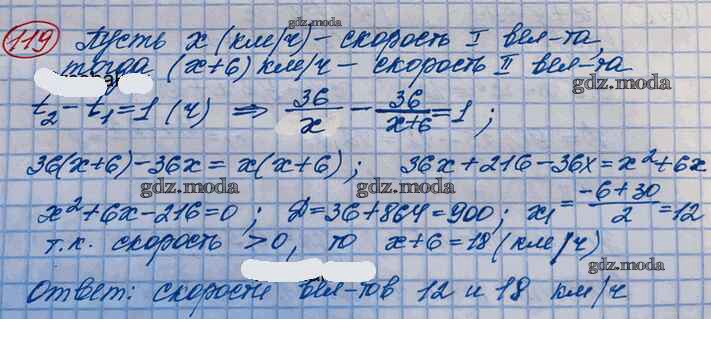 gdz.moda
119 Пусть x (км/ч) – скорость I вел-та,
тогда (x+6) км/ч – скорость II вел-та
gdz.moda
t₂ – t₁ = 1 (ч) ⇒ 36/x – 36/(x+6) = 1;
36(x+6) – 36x = x(x+6); 36x + 216 – 36x = x² + 6x
gdz.moda gdz.moda
x² + 6x – 216 = 0; D = 36 + 864 = 900; x₁ = (–6+30)/2 = 12
т.к. скорость > 0, то x+6 = 18 (км/ч)
gdz.moda
Ответ: скорости вел-тов 12 и 18 км/ч